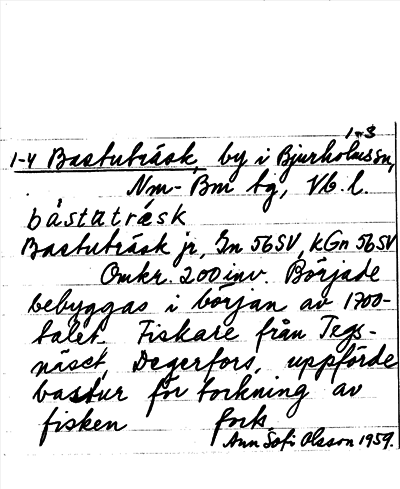 1-3
1-4 Bastuträsk, by i Bjurholms sn,
Nm-Bm tg, Vb. l.
båstatræsk
Bastuträsk jr, Gn 56SV, kGn 56SV
Omkr. 200 inv. Började
bebyggas i början av 1700-
talet. Fiskare från Tegs-
näset, Degerfors, uppförde
bastur för torkning av
fisken forts.
Ann Sofi Olsson 1959.